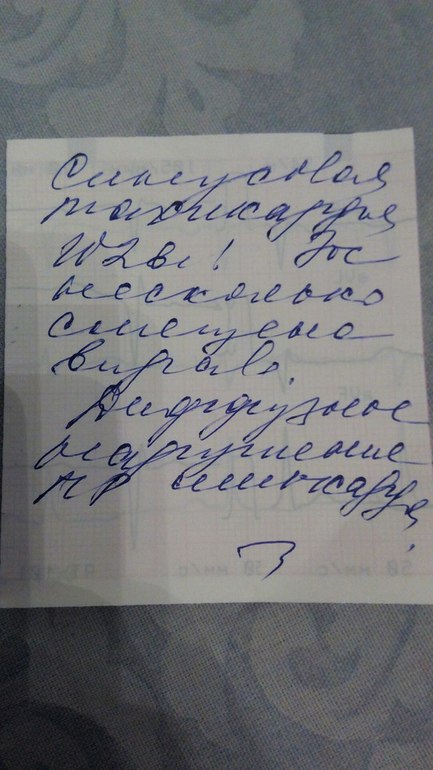 Синусовая
тахикардия
102 в 1! Эос
несколько
смещена
вправо
Диффузное
нарушение
ПР миокарда!
50 мм/с